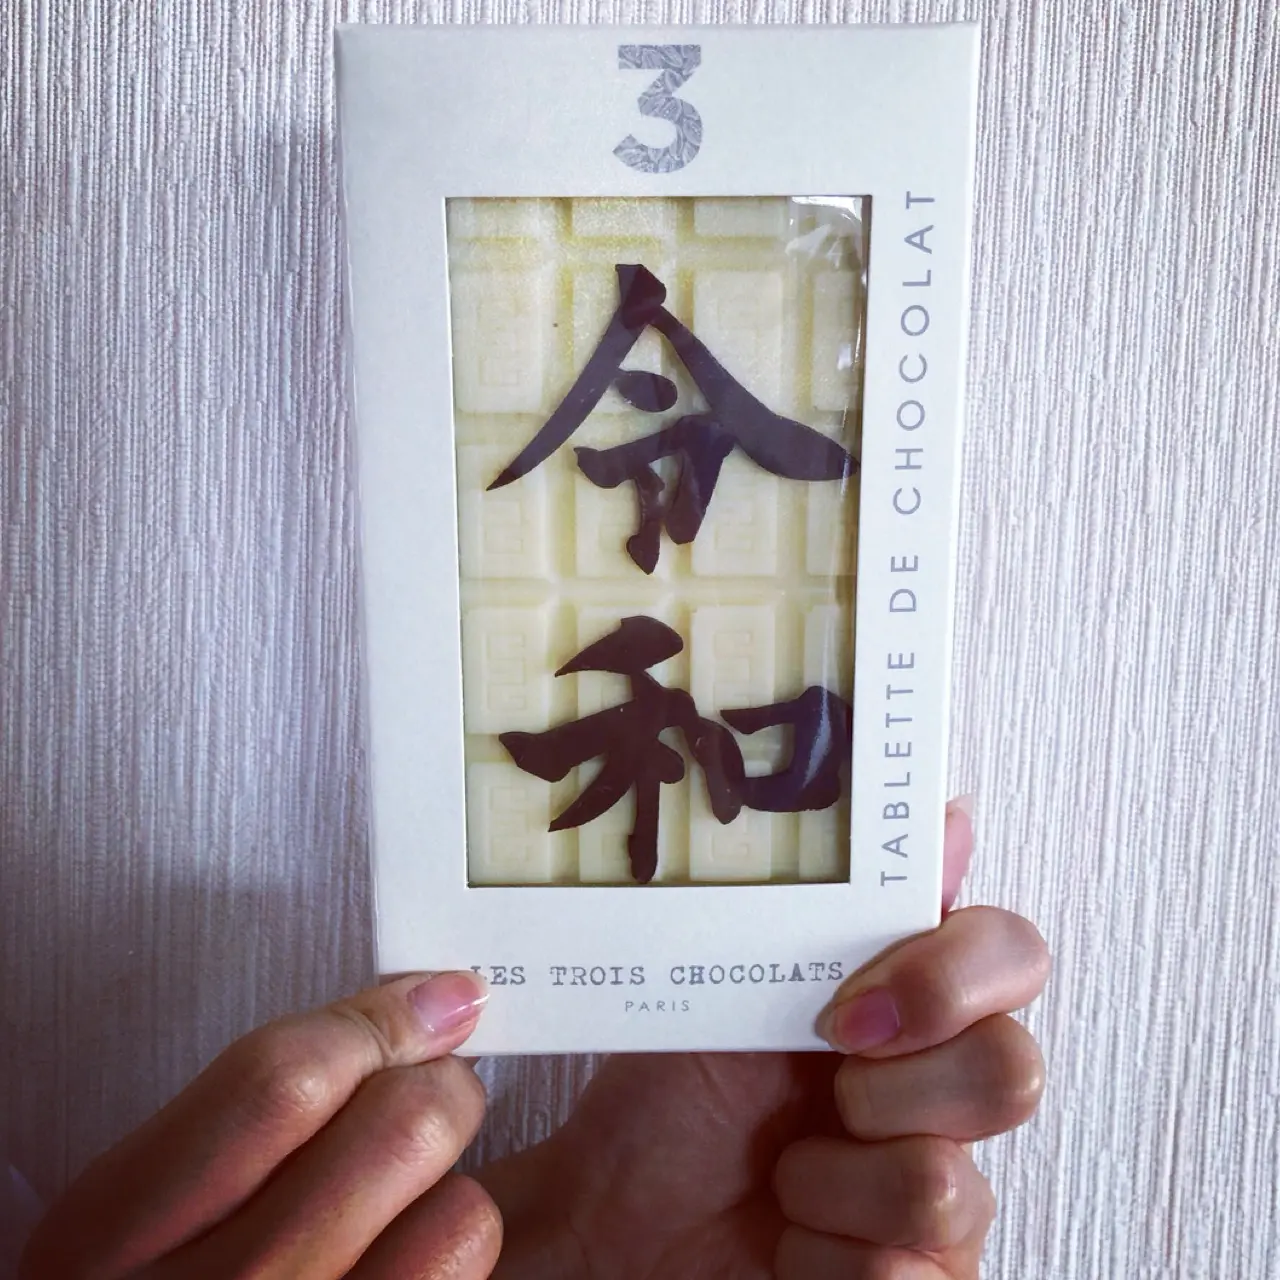 3
令和
TABLETTE DE CHOCOLAT
LES TROIS CHOCOLATS
PARIS